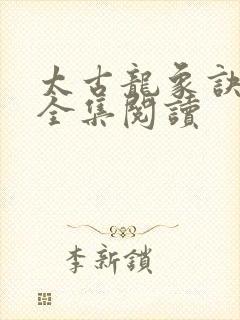 太古龍象訣
全集閱讀
李新鎖